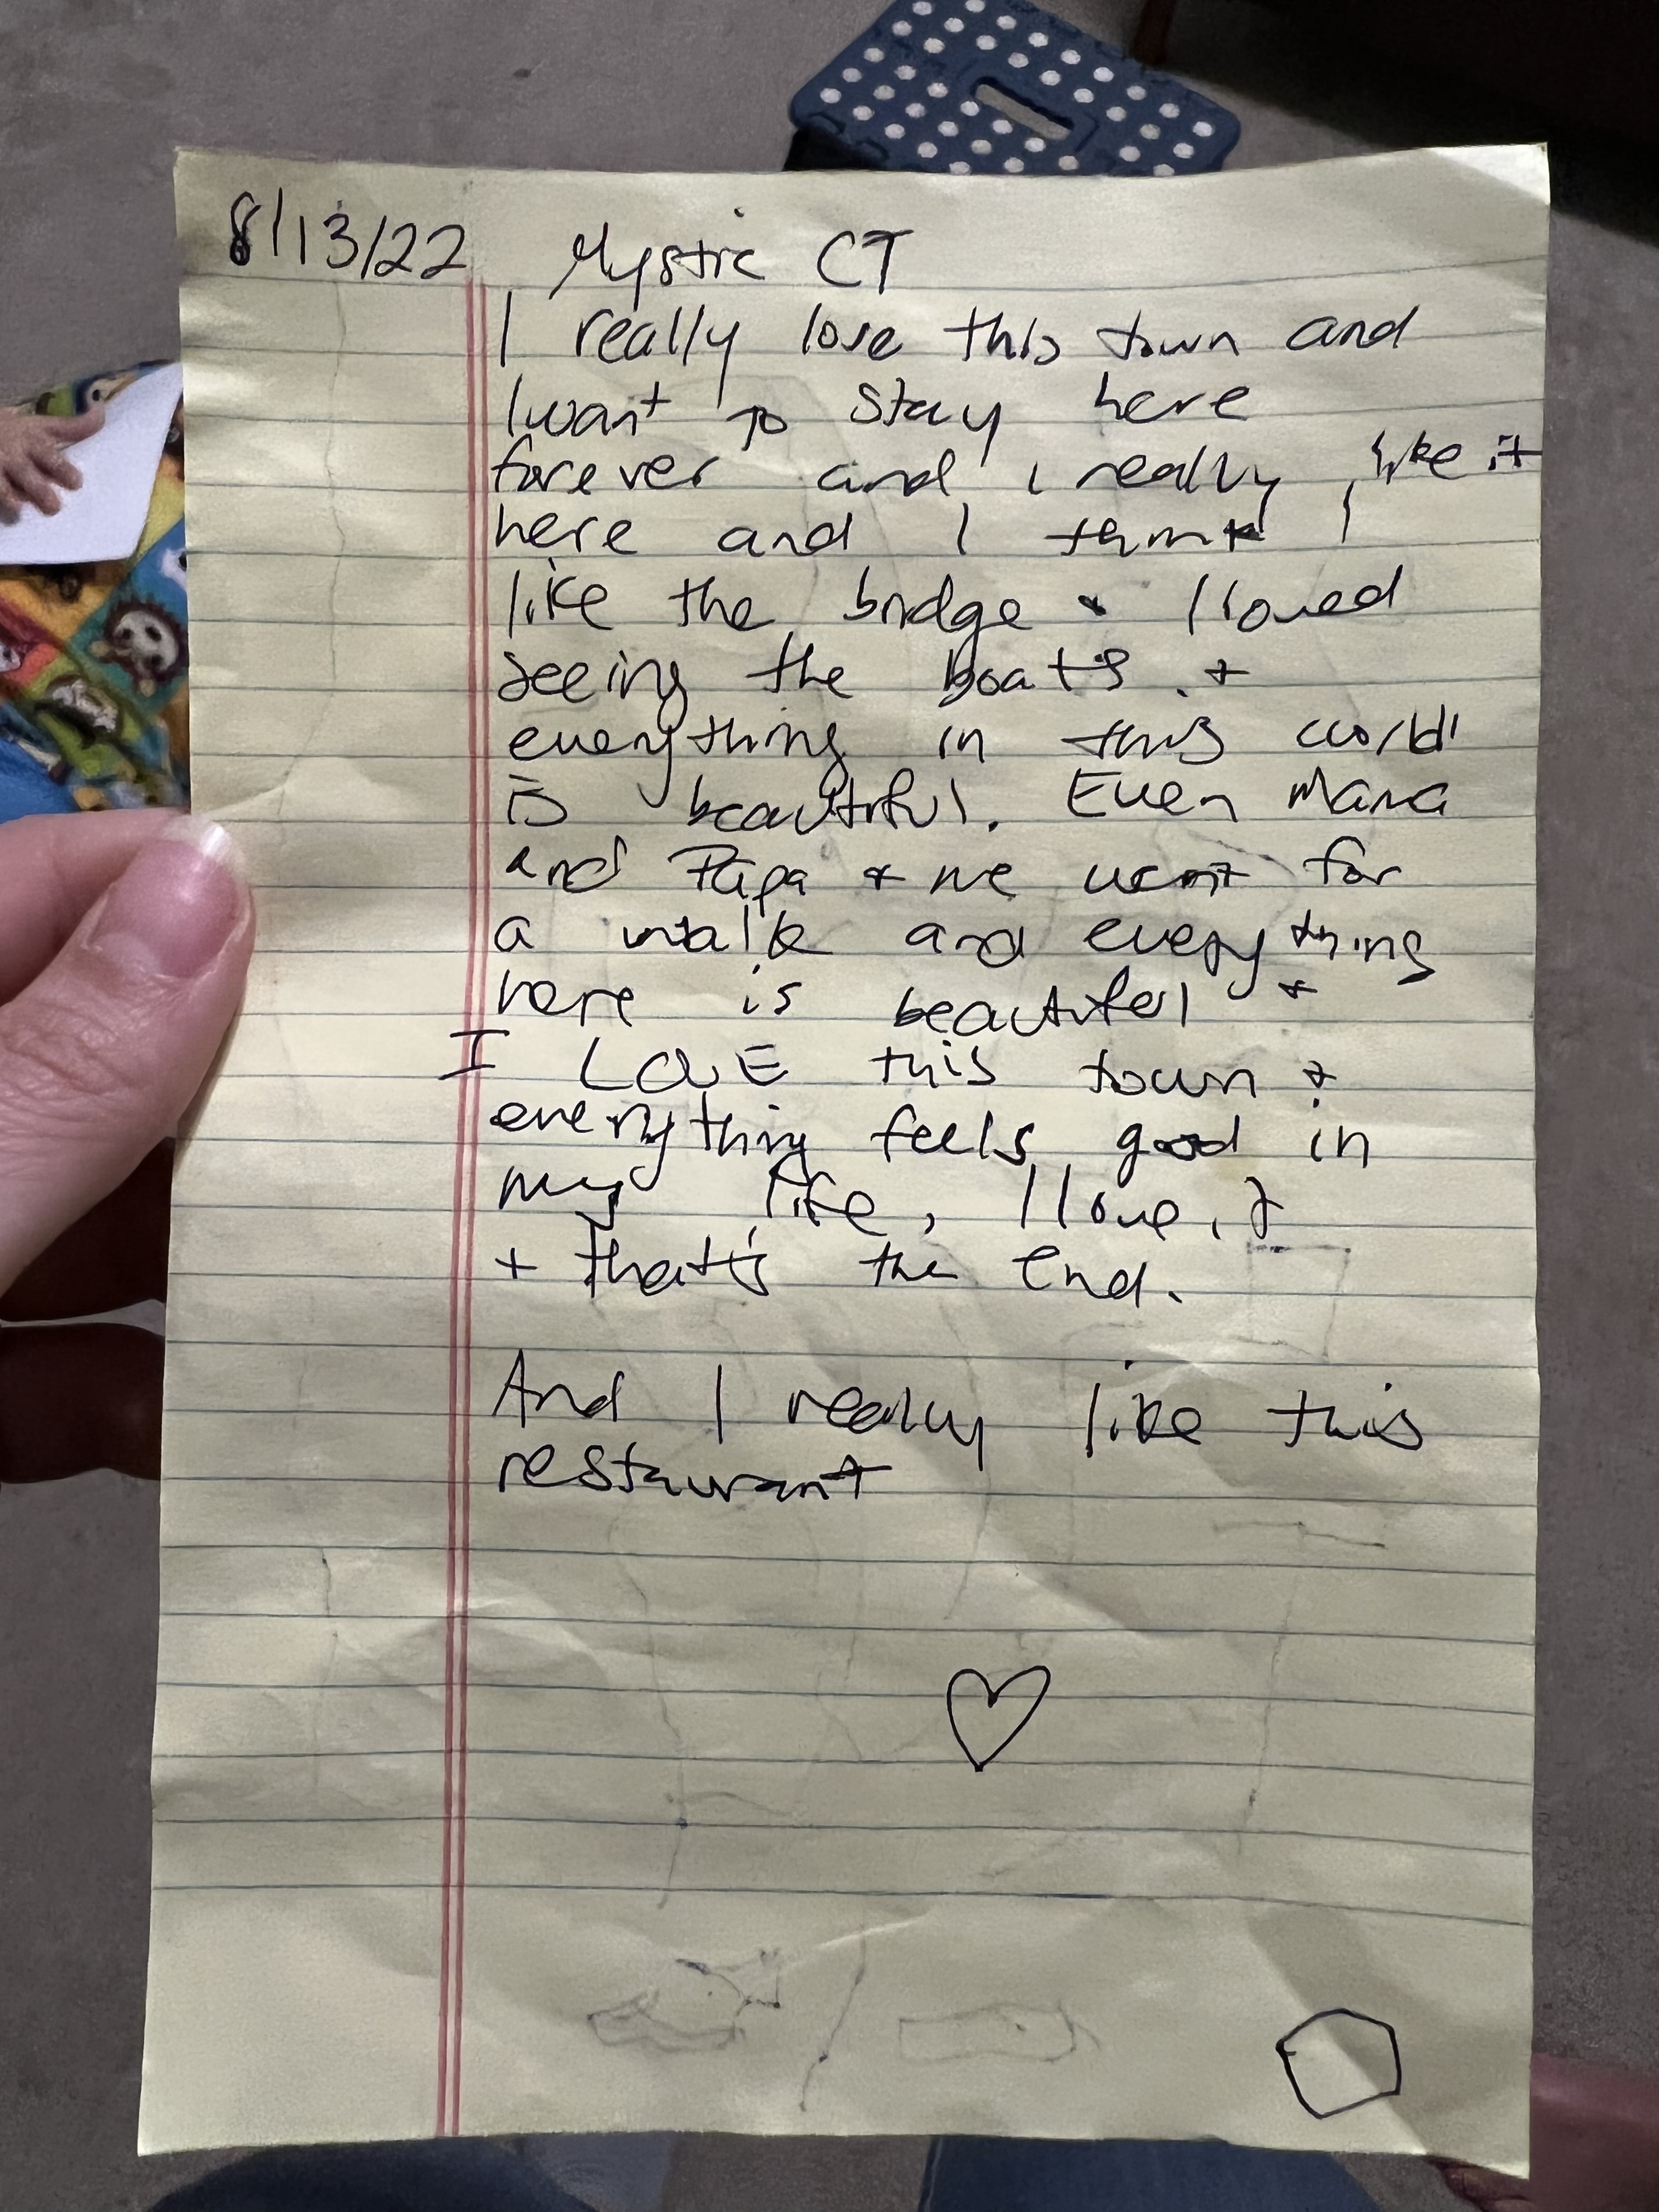 8/13/22 Mystic CT
I really love this town and
I want to stay here
forever and i really like it
here and I think I
like the bridge & I loved
seeing the boats. +
everything in this world
is beautiful. Even Mama
and Papa + we went for
a walk and everything
here is beautiful +
I LOVE this town +
everything feels good in
my life, I love, &
+ that's the end.
And I really like this
restaurant